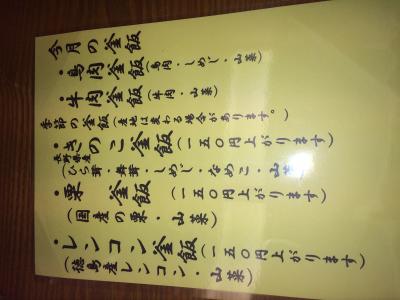 今月の釜飯
・鳥肉釜飯(鳥肉・しめじ・山菜)
・牛肉釜飯(牛肉・山菜)
季節の釜飯(産地は変わる場合があります。)
・きのこ釜飯(一五〇円上がります)
長野県産
(ひら茸・舞茸・しめじ・なめこ・山菜)
・栗 釜飯(一五〇円上がります)
(国産の栗・山菜)
・レンコン釜飯(一五〇円上がります)
(徳島産レンコン・山菜)